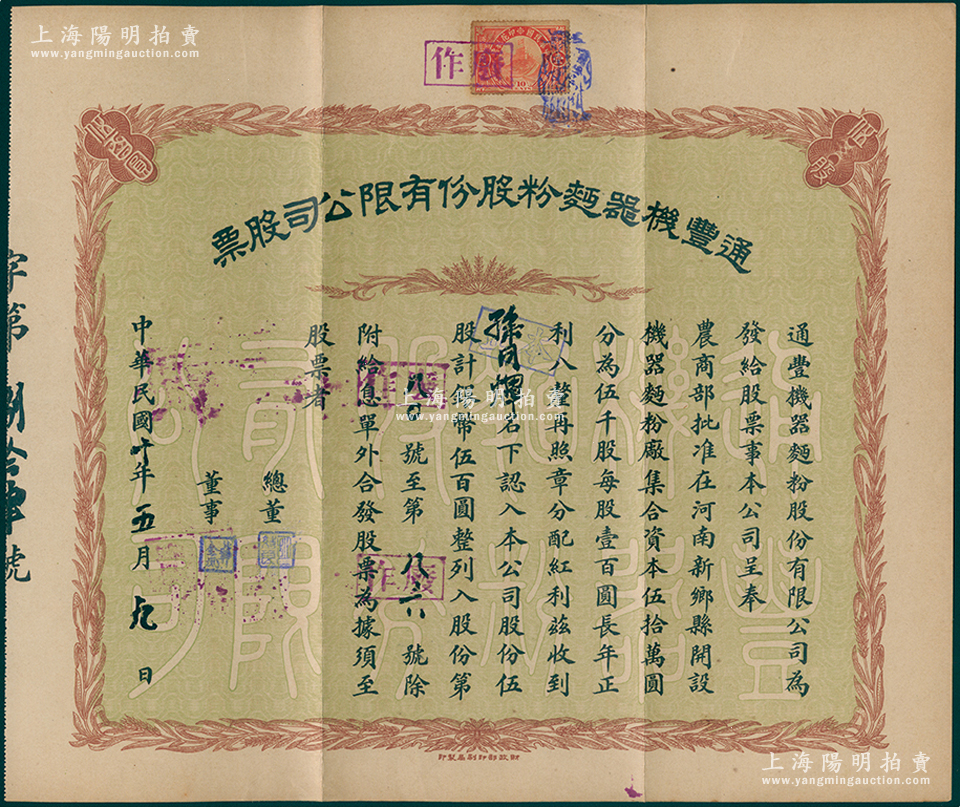 上海陽明拍賣
www.yangmingauction.com
廢作
通豐機器麵粉股份有限公司股票
通豐機器麵粉股份有限公司為
發給股票事本公司呈奉
農商部批准在河南新鄉縣開設
機器麵粉廠集合資本伍拾萬圓
分為伍千股每股壹百圓長年正
利八釐再照章分配紅利茲收到
名下認入本公司股份伍
股計銀幣伍百圓整列入股份第
號至第 號除
附給息單外合發股票為據須至
股票者
總董
董事
中華民國十年五月九日
字第 號
廢作
上海陽明拍賣
www.yangmingauction.com
財政部印刷局製印
上海陽明拍賣
www.yangmingauction.com